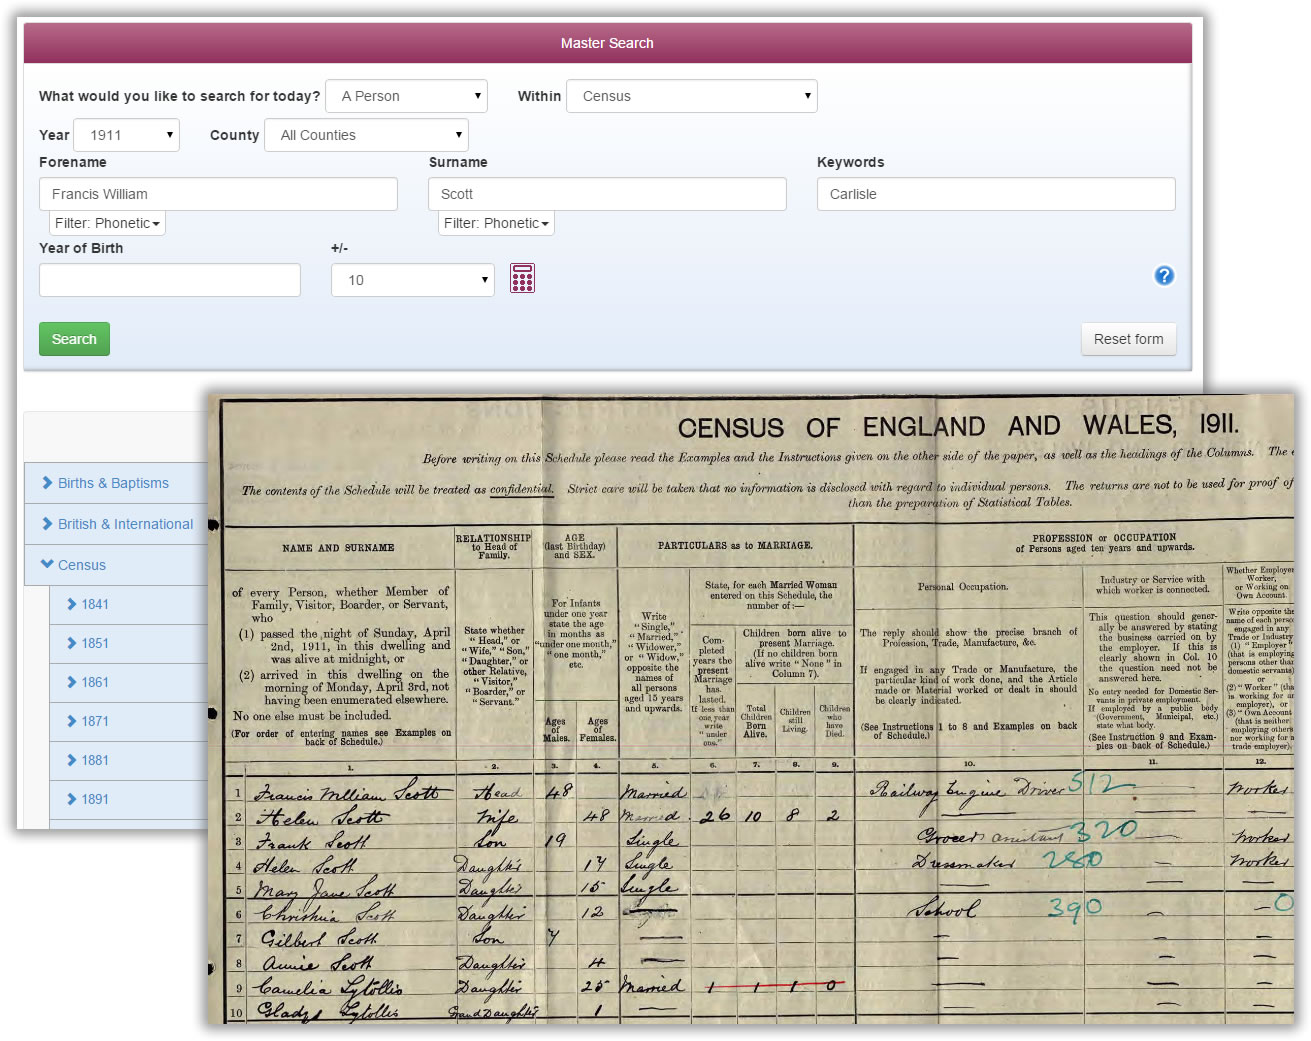 Master Search
What would you like to search for today? A Person Within Census
Year 1911 County All Counties
Forename Surname Keywords
Francis William Scott Carlisle
Filter: Phonetic Filter: Phonetic
Year of Birth +/-
10
?
Search Reset form
Births & Baptisms
British & International
Census
1841
1851
1861
1871
1881
1891
CENSUS OF ENGLAND AND WALES, 1911.
Before writing on this Schedule please read the Examples and the Instructions given on the other side of the paper, as well as the headings of the Columns. The
The contents of the Schedule will be treated as confidential. Strict care will be taken that no information is disclosed with regard to individual persons. The returns are not to be used for proof of
than the preparation of Statistical Tables.
NAME AND SURNAME
of every Person, whether Member of
Family, Visitor, Boarder, or Servant,
who
(1) passed the night of Sunday, April
2nd, 1911, in this dwelling and
was alive at midnight, or
(2) arrived in this dwelling on the
morning of Monday, April 3rd, not
having been enumerated elsewhere.
No one else must be included.
(For order of entering names see Examples on
back of Schedule.)
RELATIONSHIP
to Head of
Family.
State whether
"Head," or
"Wife," "Son,"
"Daughter," or
other Relative,
"Visitor,"
"Boarder," or
"Servant."
AGE
(last Birthday)
and SEX.
For Infants
under one year
state the age
in months as
"under one month,"
"one month,"
etc.
Ages
of
Males.
Ages
of
Females.
PARTICULARS as to MARRIAGE.
Write
"Single,"
"Married,"
"Widower,"
or "Widow,"
opposite the
names of
all persons
aged 15 years
and upwards.
State, for each Married Woman
entered on this Schedule, the
number of:—
Com-
pleted
years the
present
Marriage
has
lasted.
If less than
one year
write
"under
one."
Children born alive to
present Marriage.
(If no children born
alive write "None" in
Column 7).
Total
Children
Born
Alive.
Children
still
Living.
Children
who
have
Died.
PROFESSION or OCCUPATION
of Persons aged ten years and upwards.
Personal Occupation.
The reply should show the precise branch of
Profession, Trade, Manufacture, &c.
If engaged in any Trade or Manufacture, the
particular kind of work done, and the Article
made or Material worked or dealt in should
be clearly indicated.
(See Instructions 1 to 8 and Examples on back
of Schedule.)
Industry or Service with
which worker is connected.
This question should gener-
ally be answered by stating
the business carried on by
the employer. If this is
clearly shown in Col. 10
the question need not be
answered here.
No entry needed for Domestic Ser-
vants in private employment.
If employed by a public body
(Government, Municipal, etc.)
state what body.
(See Instruction 9 and Exam-
ples on back of Schedule.)
Whether Employer,
Worker,
or Working on
Own Account.
Write opposite the
name of each person
engaged in any
Trade or Industry
(1) "Employer"
(that is employing
persons other than
domestic servants),
or
(2) "Worker" (that
is working for an
employer), or
(3) "Own Account"
(that is neither
employing others
nor working for a
trade employer).
1. 2. 3. 4. 5. 6. 7. 8. 9. 10. 11. 12.
1 Francis William Scott Head 48 Married Railway Engine Driver 512 Worker
2 Helen Scott Wife 48 Married 26 10 8 2
3 Frank Scott Son 19 Single Grocers assistant 320 Worker
4 Helen Scott Daughter 17 Single Dressmaker 280 Worker
5 Mary Jane Scott Daughter 15 Single
6 Christina Scott Daughter 12 School 390 0
7 Gilbert Scott Son 7
8 Annie Scott Daughter 4
9 Camelia Lytollis Daughter 25 Married 1 1 1 0
10 Gladys Lytollis Grand Daughter 1